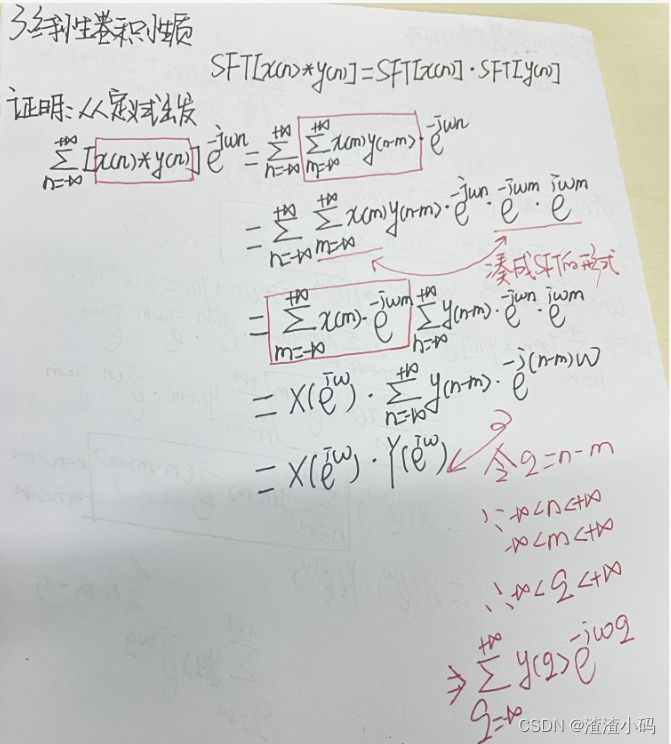 3、线性卷积性质
SFT[x(n)*y(n)]=SFT[x(n)]·SFT[y(n)]
证明:从定义式出发
∑_{n=-∞}^{+∞}[x(n)*y(n)]e^{-jωn} = ∑_{n=-∞}^{+∞} ∑_{m=-∞}^{+∞} x(m)y(n-m)·e^{-jωn}
= ∑_{n=-∞}^{+∞} ∑_{m=-∞}^{+∞} x(m)y(n-m)·e^{-jωn}·e^{-jωm}·e^{jωm}
凑成SFT的形式
= ∑_{m=-∞}^{+∞} x(m)·e^{-jωm} ∑_{n=-∞}^{+∞} y(n-m)·e^{-jωn}·e^{jωm}
= X(e^{jω})·∑_{n=-∞}^{+∞} y(n-m)·e^{-j(n-m)ω}
= X(e^{jω})·Y(e^{jω})
令q=n-m
∵-∞<n<+∞
-∞<m<+∞
∴-∞<q<+∞
⇒ ∑_{q=-∞}^{+∞} y(q)e^{-jωq}
CSDN @渣渣小码